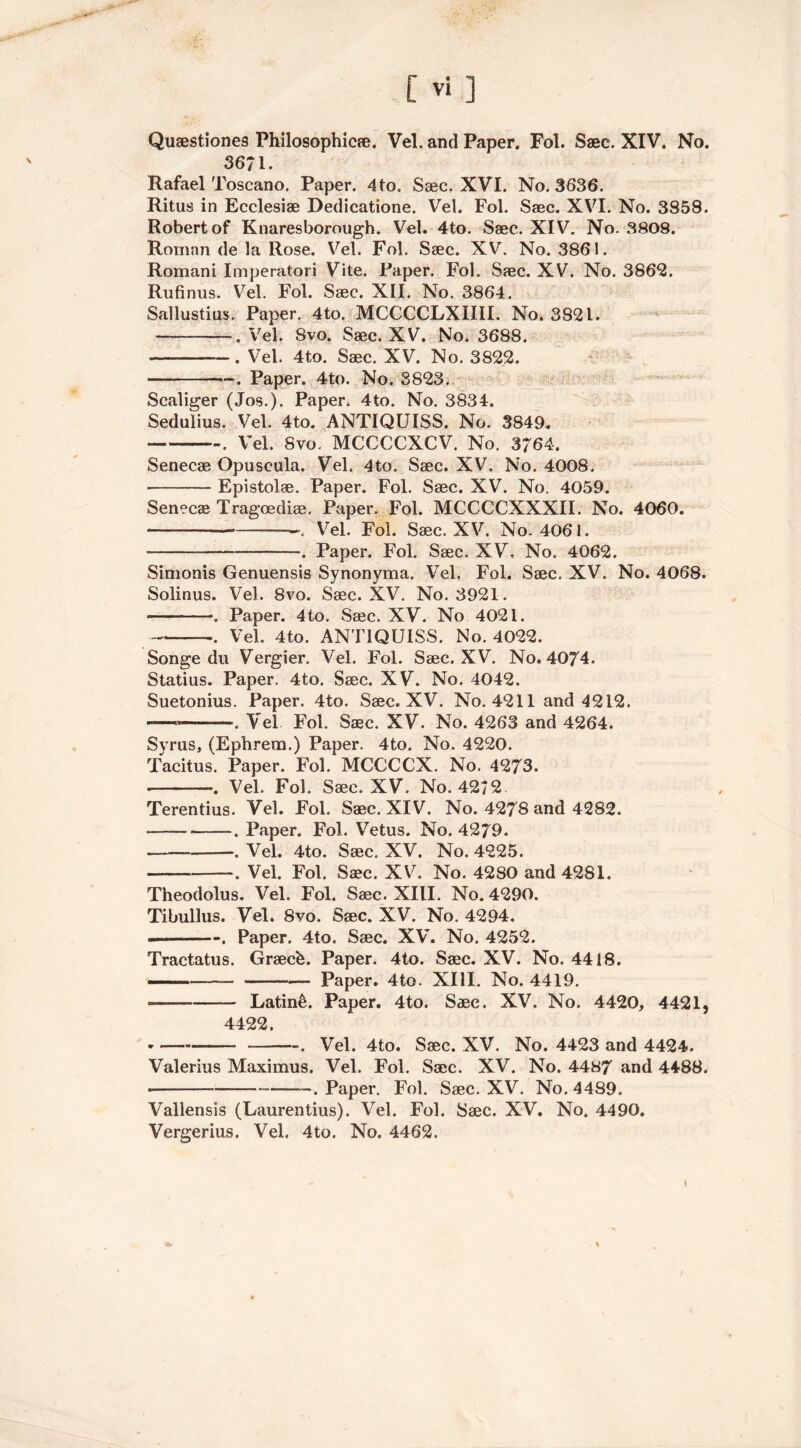 [ vi ]
Quæstiones Philosophicæ. Vel. and Paper. Fol. Sæc. XIV. No.
3671.
Rafael Toscano. Paper. 4to. Sæc. XVI. No. 3636.
Ritus in Ecclesiæ Dedicatione. Vel. Fol. Sæc. XVI. No. 3858.
Robert of Knaresborough. Vel. 4to. Sæc. XIV. No. 3808.
Roman de la Rose. Vel. Fol. Sæc. XV. No. 3861.
Romani Imperatori Vite. Paper. Fol. Sæc. XV. No. 3862.
Rufinus. Vel. Fol. Sæc. XII. No. 3864.
Sallustius. Paper. 4to. MCCCCLXIIII. No. 3821.
———. Vel. 8vo. Sæc. XV. No. 3688.
———. Vel. 4to. Sæc. XV. No. 3822.
———. Paper. 4to. No. 3823.
Scaliger (Jos.). Paper. 4to. No. 3834.
Sedulius. Vel. 4to. ANTIQUISS. No. 3849.
———. Vel. 8vo. MCCCCXCV. No. 3764.
Senecæ Opuscula. Vel. 4to. Sæc. XV. No. 4008.
——— Epistolæ. Paper. Fol. Sæc. XV. No. 4059.
Senecæ Tragœdiæ. Paper. Fol. MCCCCXXXII. No. 4060.
——— ———. Vel. Fol. Sæc. XV. No. 4061.
——— ———. Paper. Fol. Sæc. XV. No. 4062.
Simonis Genuensis Synonyma. Vel. Fol. Sæc. XV. No. 4068.
Solinus. Vel. 8vo. Sæc. XV. No. 3921.
———. Paper. 4to. Sæc. XV. No 4021.
———. Vel. 4to. ANTIQUISS. No. 4022.
Songe du Vergier. Vel. Fol. Sæc. XV. No. 4074.
Statius. Paper. 4to. Sæc. XV. No. 4042.
Suetonius. Paper. 4to. Sæc. XV. No. 4211 and 4212.
———. Vel Fol. Sæc. XV. No. 4263 and 4264.
Syrus, (Ephrem.) Paper. 4to. No. 4220.
Tacitus. Paper. Fol. MCCCCX. No. 4273.
———. Vel. Fol. Sæc. XV. No. 4272
Terentius. Vel. Fol. Sæc. XIV. No. 4278 and 4282.
———. Paper. Fol. Vetus. No. 4279.
———. Vel. 4to. Sæc. XV. No. 4225.
———. Vel. Fol. Sæc. XV. No. 4280 and 4281.
Theodolus. Vel. Fol. Sæc. XIII. No. 4290.
Tibullus. Vel. 8vo. Sæc. XV. No. 4294.
———. Paper. 4to. Sæc. XV. No. 4252.
Tractatus. Græcè. Paper. 4to. Sæc. XV. No. 4418.
——— ——— Paper. 4to. XIII. No. 4419.
——— Latinè. Paper. 4to. Sæc. XV. No. 4420, 4421,
4422.
——— ———. Vel. 4to. Sæc. XV. No. 4423 and 4424.
Valerius Maximus. Vel. Fol. Sæc. XV. No. 4487 and 4488.
——— ———. Paper. Fol. Sæc. XV. No. 4489.
Vallensis (Laurentius). Vel. Fol. Sæc. XV. No. 4490.
Vergerius. Vel. 4to. No. 4462.